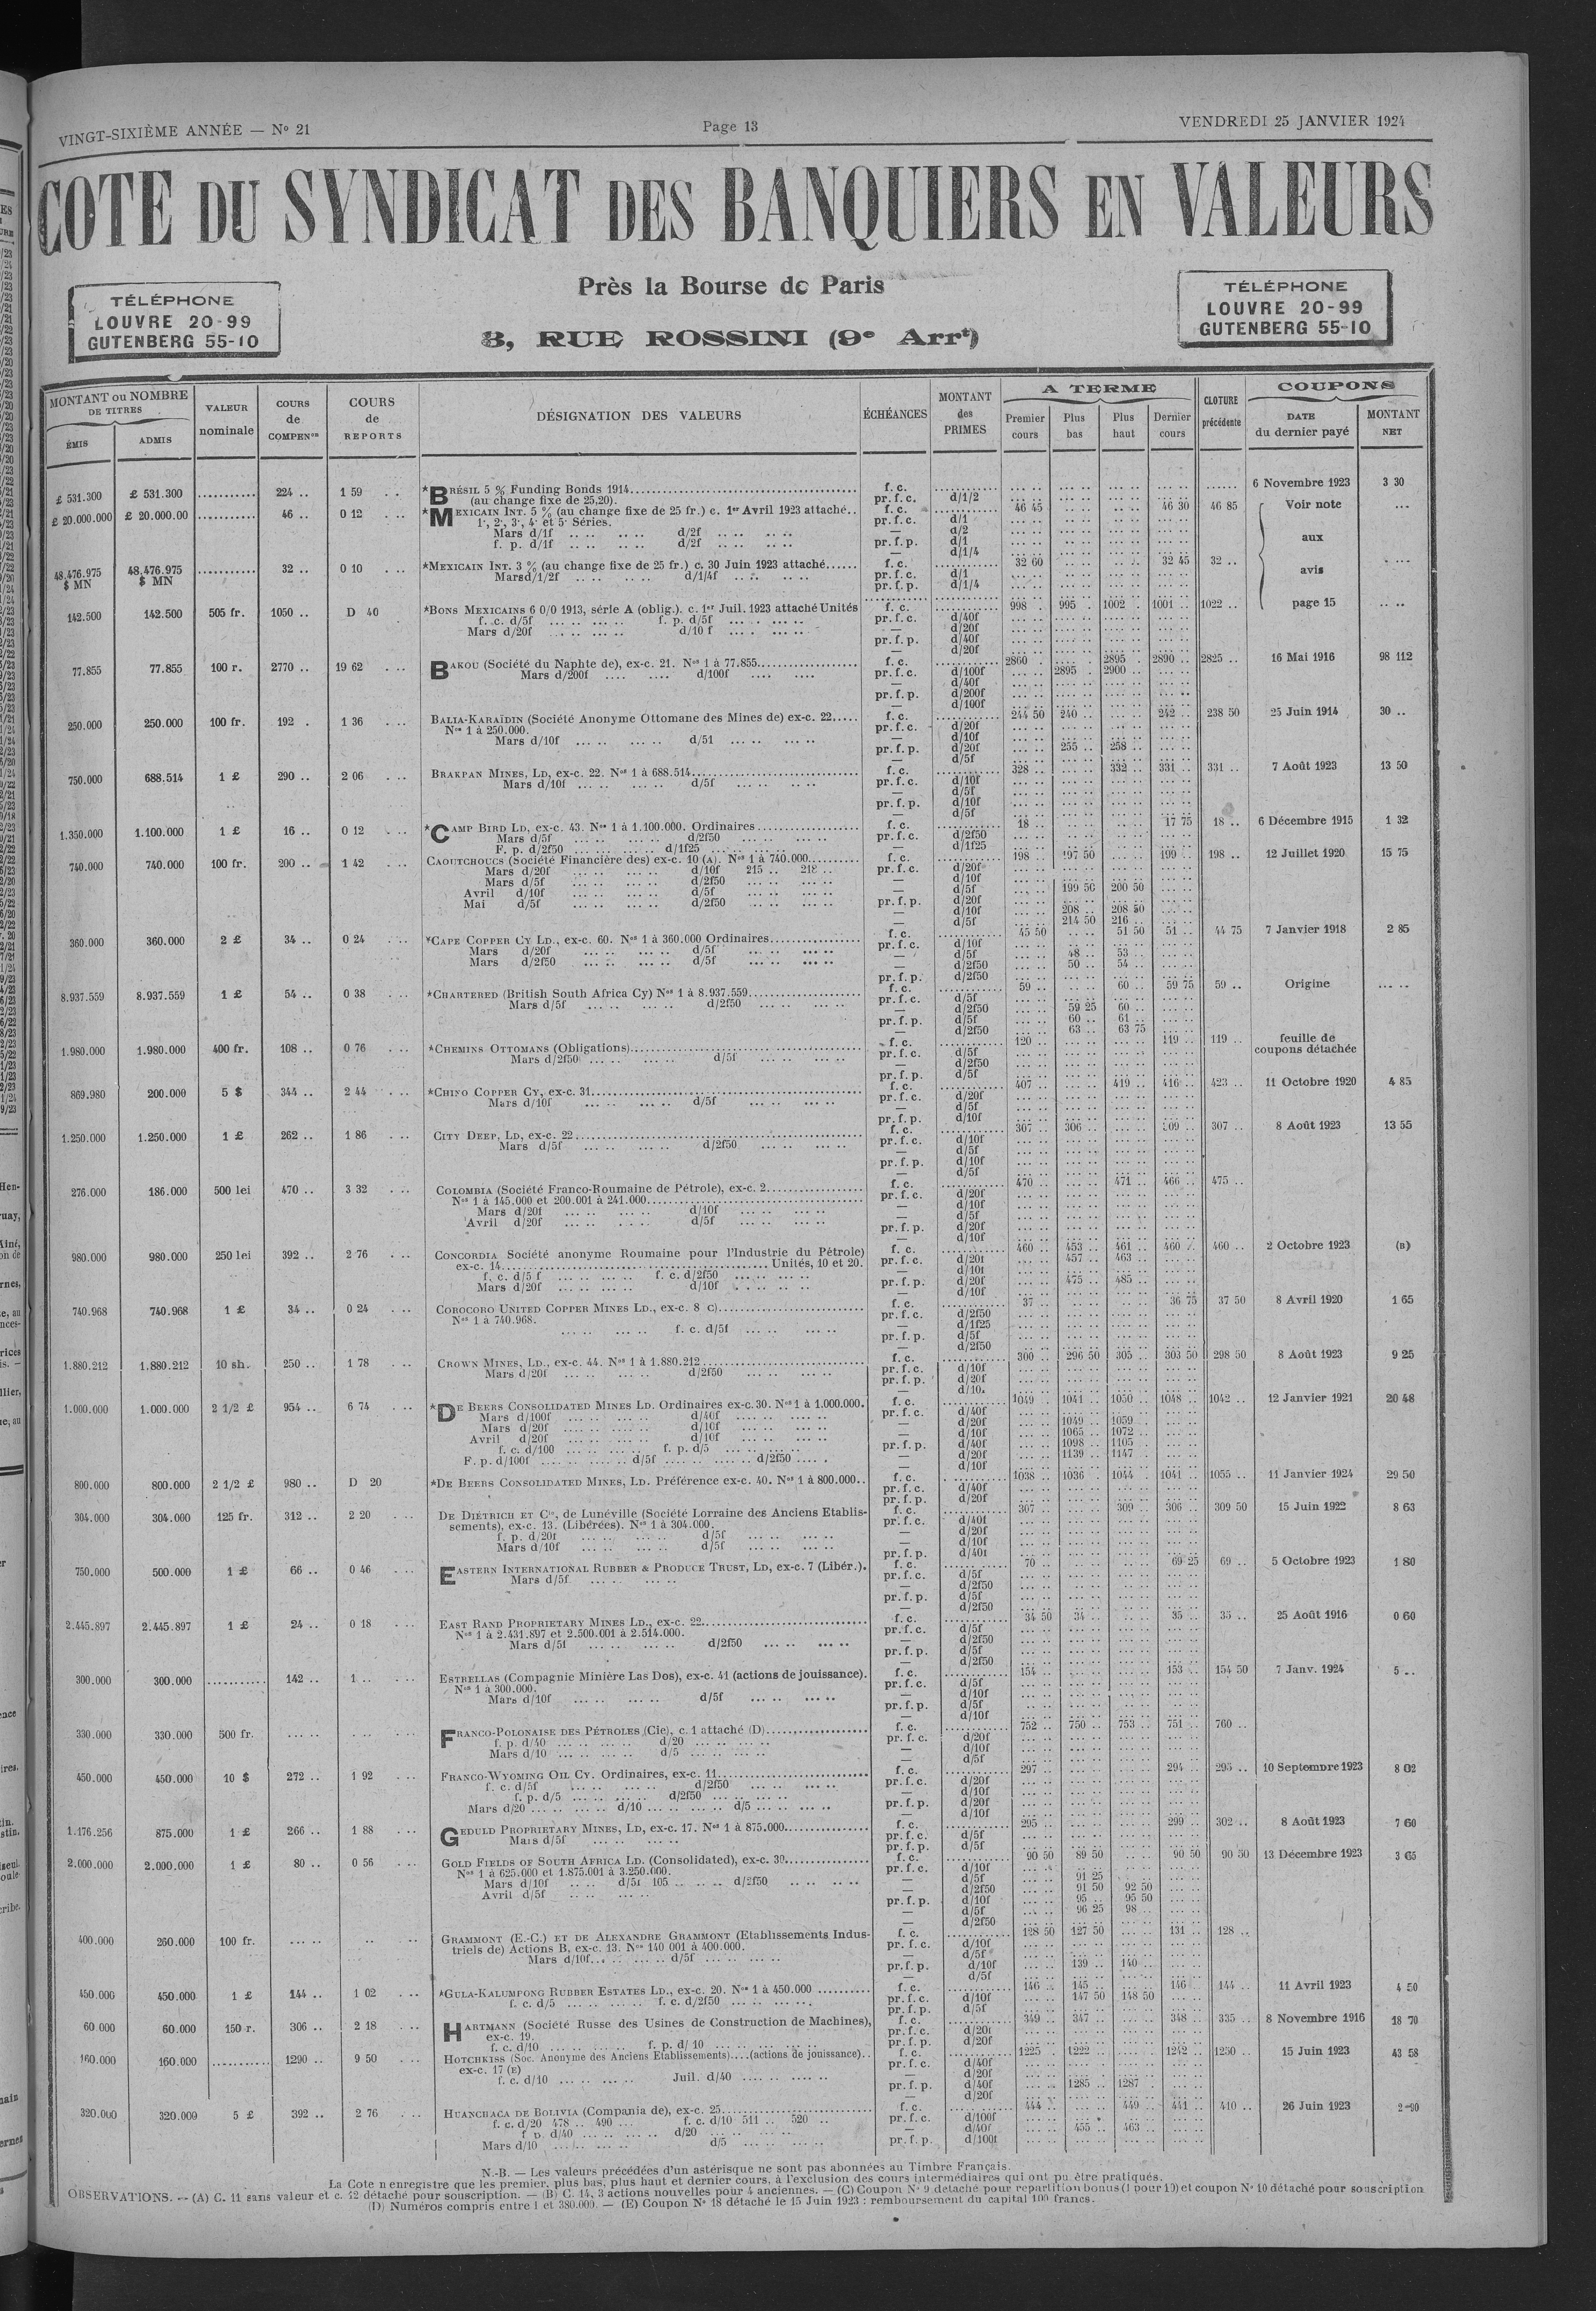 VINGT-SIXIÈME ANNÉE — N° 21
Page 13
VENDREDI 25 JANVIER 1924
COTE DU SYNDICAT DES BANQUIERS EN VALEURS
Près la Bourse de Paris
8, RUE ROSSINI (9e Arrt)
TÉLÉPHONE
LOUVRE 20-99
GUTENBERG 55-10
TÉLÉPHONE
LOUVRE 20-99
GUTENBERG 55-10
MONTANT ou NOMBRE DE TITRES
ÉMIS
ADMIS
VALEUR nominale
COURS de COMPENon
COURS de REPORTS
DÉSIGNATION DES VALEURS
ÉCHÉANCES
MONTANT des PRIMES
A TERME
Premier cours
Plus bas
Plus haut
Dernier cours
CLOTURE précédente
COUPONS
DATE du dernier payé
MONTANT NET
£ 531.300 £ 531.300 .......... 224 .. 1 59 *BRÉSIL 5 % Funding Bonds 1914 f. c. 6 Novembre 1923 3 30
(au change fixe de 25,20). pr. f. c. d/1/2
£ 20.000.000 £ 20.000.00 .......... 46 .. 0 12 *MEXICAIN INT. 5 % (au change fixe de 25 fr.) c. 1er Avril 1923 attaché.. f. c. 46 45 46 30 46 85 Voir note
1e, 2e, 3e, 4e et 5e Séries. pr. f. c. d/1
Mars d/1f d/2f — d/2
f. p. d/1f d/2f pr. f. p. d/1 aux
— d/1/4
48.476.975 $ MN 48.476.975 $ MN .......... 32 .. 0 10 *MEXICAIN INT. 3 % (au change fixe de 25 fr.) c. 30 Juin 1923 attaché...... f. c. 32 60 32 45 32 .. avis
Mars d/1/2f d/1/4f pr. f. c. d/1
pr. f. p. d/1/4
142.500 142.500 505 fr. 1050 .. D 40 *BONS MEXICAINS 6 0/0 1913, série A (oblig.). c. 1er Juil. 1923 attaché Unités f. c. 998 . 995 . 1002 . 1001 .. 1022 .. page 15
f. c. d/5f f. p. d/5f pr. f. c. d/40f
Mars d/20f d/10 f — d/20f
pr. f. p. d/40f
— d/20f
77.855 77.855 100 r. 2770 .. 19 62 BAKOU (Société du Naphte de), ex-c. 21. Nos 1 à 77.855 f. c. 2860 . 2895 . 2890 .. 2825 .. 16 Mai 1916 98 112
Mars d/200f d/100f pr. f. c. d/100f 2895 . 2900 ..
— d/40f
pr. f. p. d/200f
— d/100f
250.000 250.000 100 fr. 192 . 1 36 BALIA-KARAÏDIN (Société Anonyme Ottomane des Mines de) ex-c. 22..... f. c. 244 50 240 .. 242 .. 238 50 25 Juin 1914 30 ..
Nos 1 à 250.000. pr. f. c. d/20f
Mars d/10f d/51 — d/10f
pr. f. p. d/20f 255 .. 258 ..
— d/5f
750.000 688.514 1 £ 290 .. 2 06 BRAKPAN MINES, LD, ex-c. 22. Nos 1 à 688.514 f. c. 328 .. 332 .. 331 .. 331 .. 7 Août 1923 13 50
Mars d/10f d/5f pr. f. c. d/10f
— d/5f
pr. f. p. d/10f
— d/5f
1.350.000 1.100.000 1 £ 16 .. 0 12 *CAMP BIRD LD, ex-c. 43. Nos 1 à 1.100.000. Ordinaires f. c. 18 .. 17 75 18 .. 6 Décembre 1915 1 32
Mars d/5f d/2f50 pr. f. c. d/2f50
F. p. d/2f50 d/1f25 — d/1f25
740.000 740.000 100 fr. 200 .. 1 42 CAOUTCHOUCS (Société Financière des) ex-c. 10 (A). Nos 1 à 740.000 f. c. 198 .. 197 50 199 .. 198 .. 12 Juillet 1920 15 75
Mars d/20f d/10f 215 .. 218 .. pr. f. c. d/20f
Mars d/5f d/2f50 — d/10f
Avril d/10f d/5f — d/5f 199 50 200 50
Mai d/5f d/2f50 pr. f. p. d/20f
— d/10f 208 .. 208 50
— d/5f 214 50 216 ..
360.000 360.000 2 £ 34 .. 0 24 *CAPE COPPER CY LD., ex-c. 60. Nos 1 à 360.000 Ordinaires f. c. 45 50 51 50 51 .. 44 75 7 Janvier 1918 2 85
Mars d/20f d/5f pr. f. c. d/10f
Mars d/2f50 d/5f — d/5f 48 .. 53 ..
— d/2f50 50 .. 54 ..
pr. f. p. d/2f50
8.937.559 8.937.559 1 £ 54 .. 0 38 *CHARTERED (British South Africa Cy) Nos 1 à 8.937.559 f. c. 59 .. 60 .. 59 75 59 .. Origine
Mars d/5f d/2f50 pr. f. c. d/5f
— d/2f50 59 25 60 ..
pr. f. p. d/5f 60 .. 61 ..
— d/2f50 63 .. 63 75
1.980.000 1.980.000 400 fr. 108 .. 0 76 *CHEMINS OTTOMANS (Obligations) f. c. 120 .. 119 .. 119 .. feuille de coupons détachée
Mars d/2f50 d/5f pr. f. c. d/5f
— d/2f50
pr. f. p. d/5f
869.980 200.000 5 $ 344 .. 2 44 *CHINO COPPER CY, ex-c. 31 f. c. 407 .. 419 .. 416 .. 423 .. 11 Octobre 1920 4 85
Mars d/10f d/5f pr. f. c. d/20f
— d/5f
pr. f. p. d/10f
1.250.000 1.250.000 1 £ 262 .. 1 86 CITY DEEP, LD, ex-c. 22 f. c. 307 .. 306 .. 309 .. 307 .. 8 Août 1923 13 55
Mars d/5f d/2f50 pr. f. c. d/10f
— d/5f
pr. f. p. d/10f
— d/5f
276.000 186.000 500 lei 470 .. 3 32 COLOMBIA (Société Franco-Roumaine de Pétrole), ex-c. 2 f. c. 470 .. 471 .. 466 .. 475 ..
Nos 1 à 145.000 et 200.001 à 241.000 pr. f. c. d/20f
Mars d/20f d/10f — d/10f
Avril d/20f d/5f — d/5f
pr. f. p. d/20f
— d/10f
980.000 980.000 250 lei 392 .. 2 76 CONCORDIA Société anonyme Roumaine pour l'Industrie du Pétrole) f. c. 460 .. 453 .. 461 .. 460 .. 460 .. 2 Octobre 1923 (B)
ex-c. 14 Unités, 10 et 20. pr. f. c. d/20f 457 .. 463 ..
f. c. d/5 f f. c. d/2f50 — d/10f
Mars d/20f d/10f pr. f. p. d/20f 475 .. 485 ..
— d/10f
740.968 740.968 1 £ 34 .. 0 24 COROCORO UNITED COPPER MINES LD., ex-c. 8 c) f. c. 37 .. 36 75 37 50 8 Avril 1920 1 65
Nos 1 à 740.968. pr. f. c. d/2f50
f. c. d/5f — d/1f25
pr. f. p. d/5f
— d/2f50
1.880.212 1.880.212 10 sh. 250 .. 1 78 CROWN MINES, LD., ex-c. 44. Nos 1 à 1.880.212 f. c. 300 .. 296 50 305 .. 303 50 298 50 8 Août 1923 9 25
Mars d/20f d/2f50 pr. f. c. d/10f
pr. f. p. d/20f
— d/10.
1.000.000 1.000.000 2 1/2 £ 954 .. 6 74 *DE BEERS CONSOLIDATED MINES LD. Ordinaires ex-c. 30. Nos 1 à 1.000.000. f. c. 1049 . 1041 .. 1050 .. 1048 .. 1042 .. 12 Janvier 1921 20 48
Mars d/100f d/40f pr. f. c. d/40f
Mars d/20f d/10f — d/20f 1049 .. 1059 ..
Avril d/20f d/10f — d/10f 1065 .. 1072 ..
f. c. d/100 f. p. d/5 pr. f. p. d/40f 1098 .. 1105 .
F. p. d/100f d/5f d/2f50 — d/20f 1139 .. 1147 ..
— d/10f
800.000 800.000 2 1/2 £ 980 .. D 20 *DE BEERS CONSOLIDATED MINES, LD. Préférence ex-c. 40. Nos 1 à 800.000.. f. c. 1038 .. 1036 . 1044 .. 1041 .. 1055 .. 11 Janvier 1924 29 50
pr. f. c. d/40f
pr. f. p. d/20f
304.000 304.000 125 fr. 312 .. 2 20 DE DIÉTRICH ET Cie, de Lunéville (Société Lorraine des Anciens Etablis- f. c. 307 .. 309 .. 306 .. 309 50 15 Juin 1922 8 63
sements), ex-c. 13. (Libérées). Nos 1 à 304.000. pr. f. c. d/40f
f. p. d/20f d/5f — d/20f
Mars d/10f d/5f — d/10f
pr. f. p. d/40f
750.000 500.000 1 £ 66 .. 0 46 EASTERN INTERNATIONAL RUBBER & PRODUCE TRUST, LD, ex-c. 7 (Libér.). f. c. 70 .. 69 25 69 .. 5 Octobre 1923 1 80
Mars d/5f pr. f. c. d/5f
— d/2f50
pr. f. p. d/5f
— d/2f50
2.445.897 2.445.897 1 £ 24 .. 0 18 EAST RAND PROPRIETARY MINES LD., ex-c. 22 f. c. 34 50 34 .. 35 .. 35 .. 25 Août 1916 0 60
Nos 1 à 2.431.897 et 2.500.001 à 2.514.000. pr. f. c. d/5f
Mars d/5f d/2f50 — d/2f50
pr. f. p. d/5f
— d/2f50
300.000 300.000 .......... 142 .. 1 .. ESTRELLAS (Compagnie Minière Las Dos), ex-c. 41 (actions de jouissance). f. c. 154 .. 153 .. 154 50 7 Janv. 1924 5 ..
Nos 1 à 300.000. pr. f. c. d/5f
Mars d/10f d/5f — d/10f
pr. f. p. d/5f
— d/10f
330.000 330.000 500 fr. FRANCO-POLONAISE DES PÉTROLES (Cie), c. 1 attaché (D) f. c. 752 .. 750 .. 753 .. 751 .. 760 ..
f. p. d/40 d/20 pr. f. c. d/20f
Mars d/10 d/5 — d/10f
— d/5f
450.000 450.000 10 $ 272 .. 1 92 FRANCO-WYOMING OIL CY. Ordinaires, ex-c. 11 f. c. 297 .. 294 .. 295 .. 10 Septembre 1923 8 02
f. c. d/5f d/2f50 pr. f. c. d/20f
f. p. d/5 d/2f50 — d/10f
Mars d/20 d/10 d/5 pr. f. p. d/20f
— d/10f
1.176.256 875.000 1 £ 266 .. 1 88 GEDULD PROPRIETARY MINES, LD, ex-c. 17. Nos 1 à 875.000 f. c. 295 .. 299 .. 302 .. 8 Août 1923 7 60
Mars d/5f pr. f. c. d/5f
pr. f. p. d/5f
2.000.000 2.000.000 1 £ 80 .. 0 56 GOLD FIELDS OF SOUTH AFRICA LD. (Consolidated), ex-c. 30 f. c. 90 50 89 50 90 50 90 50 13 Décembre 1923 3 65
Nos 1 à 625.000 et 1.875.001 à 3.250.000. pr. f. c. d/10f
Mars d/10f d/5f 105 d/2f50 — d/5f 91 25
Avril d/5f — d/2f50 91 50 92 50
pr. f. p. d/10f 95 .. 95 50
— d/5f 96 25 98 ..
— d/2f50
400.000 260.000 100 fr. GRAMMONT (E.-C.) ET DE ALEXANDRE GRAMMONT (Etablissements Indus- f. c. 128 50 127 50 131 .. 128 ..
triels de) Actions B, ex-c. 13. Nos 140 001 à 400.000. pr. f. c. d/10f
Mars d/10f d/5f — d/5f
pr. f. p. d/10f 139 .. 140 ..
— d/5f
450.000 450.000 1 £ 144 .. 1 02 *GULA-KALUMPONG RUBBER ESTATES LD., ex-c. 20. Nos 1 à 450.000 f. c. 146 .. 145 .. 146 .. 144 .. 11 Avril 1923 4 50
f. c. d/5 f. c. d/2f50 pr. f. c. d/10f 147 50 148 50
pr. f. p. d/5f
60.000 60.000 150 r. 306 .. 2 18 HARTMANN (Société Russe des Usines de Construction de Machines), f. c. 349 .. 347 .. 348 .. 335 .. 8 Novembre 1916 18 70
ex-c. 19. pr. f. c. d/20f
f. c. d/10 f. p. d/ 10 pr. f. p. d/20f
160.000 160.000 .......... 1290 .. 9 50 HOTCHKISS (Soc. Anonyme des Anciens Etablissements)....(actions de jouissance).. f. c. 1225 .. 1222 .. 1242 .. 1250 .. 15 Juin 1923 43 58
ex-c. 17 (E) pr. f. c. d/40f
f. c. d/10 Juil. d/40 — d/20f
pr. f. p. d/40f 1285 .. 1287 .
— d/20f
320.000 320.000 5 £ 392 .. 2 76 HUANCHACA DE BOLIVIA (Compania de), ex-c. 25 f. c. 444 .. 449 .. 441 .. 410 .. 26 Juin 1923
f. c. d/20 478 .. 490 ... f. c. d/10 511 .. 520 .. pr. f. c. d/100f
f p. d/40 d/20 — d/40f 455 .. 463 ..
Mars d/10 d/5 pr. f. p. d/100f
N.-B. — Les valeurs précédées d'un astérisque ne sont pas abonnées au Timbre Français.
La Cote n enregistre que les premier, plus bas, plus haut et dernier cours, à l'exclusion des cours intermédiaires qui ont pu être pratiqués.
OBSERVATIONS. — (A) C. 11 sans valeur et c. 12 détaché pour souscription. — (B) C. 14, 3 actions nouvelles pour 4 anciennes. — (C) Coupon N° 9 detaché pour repartition bonus (1 pour 10) et coupon N° 10 détaché pour souscription
(D) Numéros compris entre 1 et 380.000. — (E) Coupon N° 18 détaché le 15 Juin 1923 : remboursement du capital 100 francs.